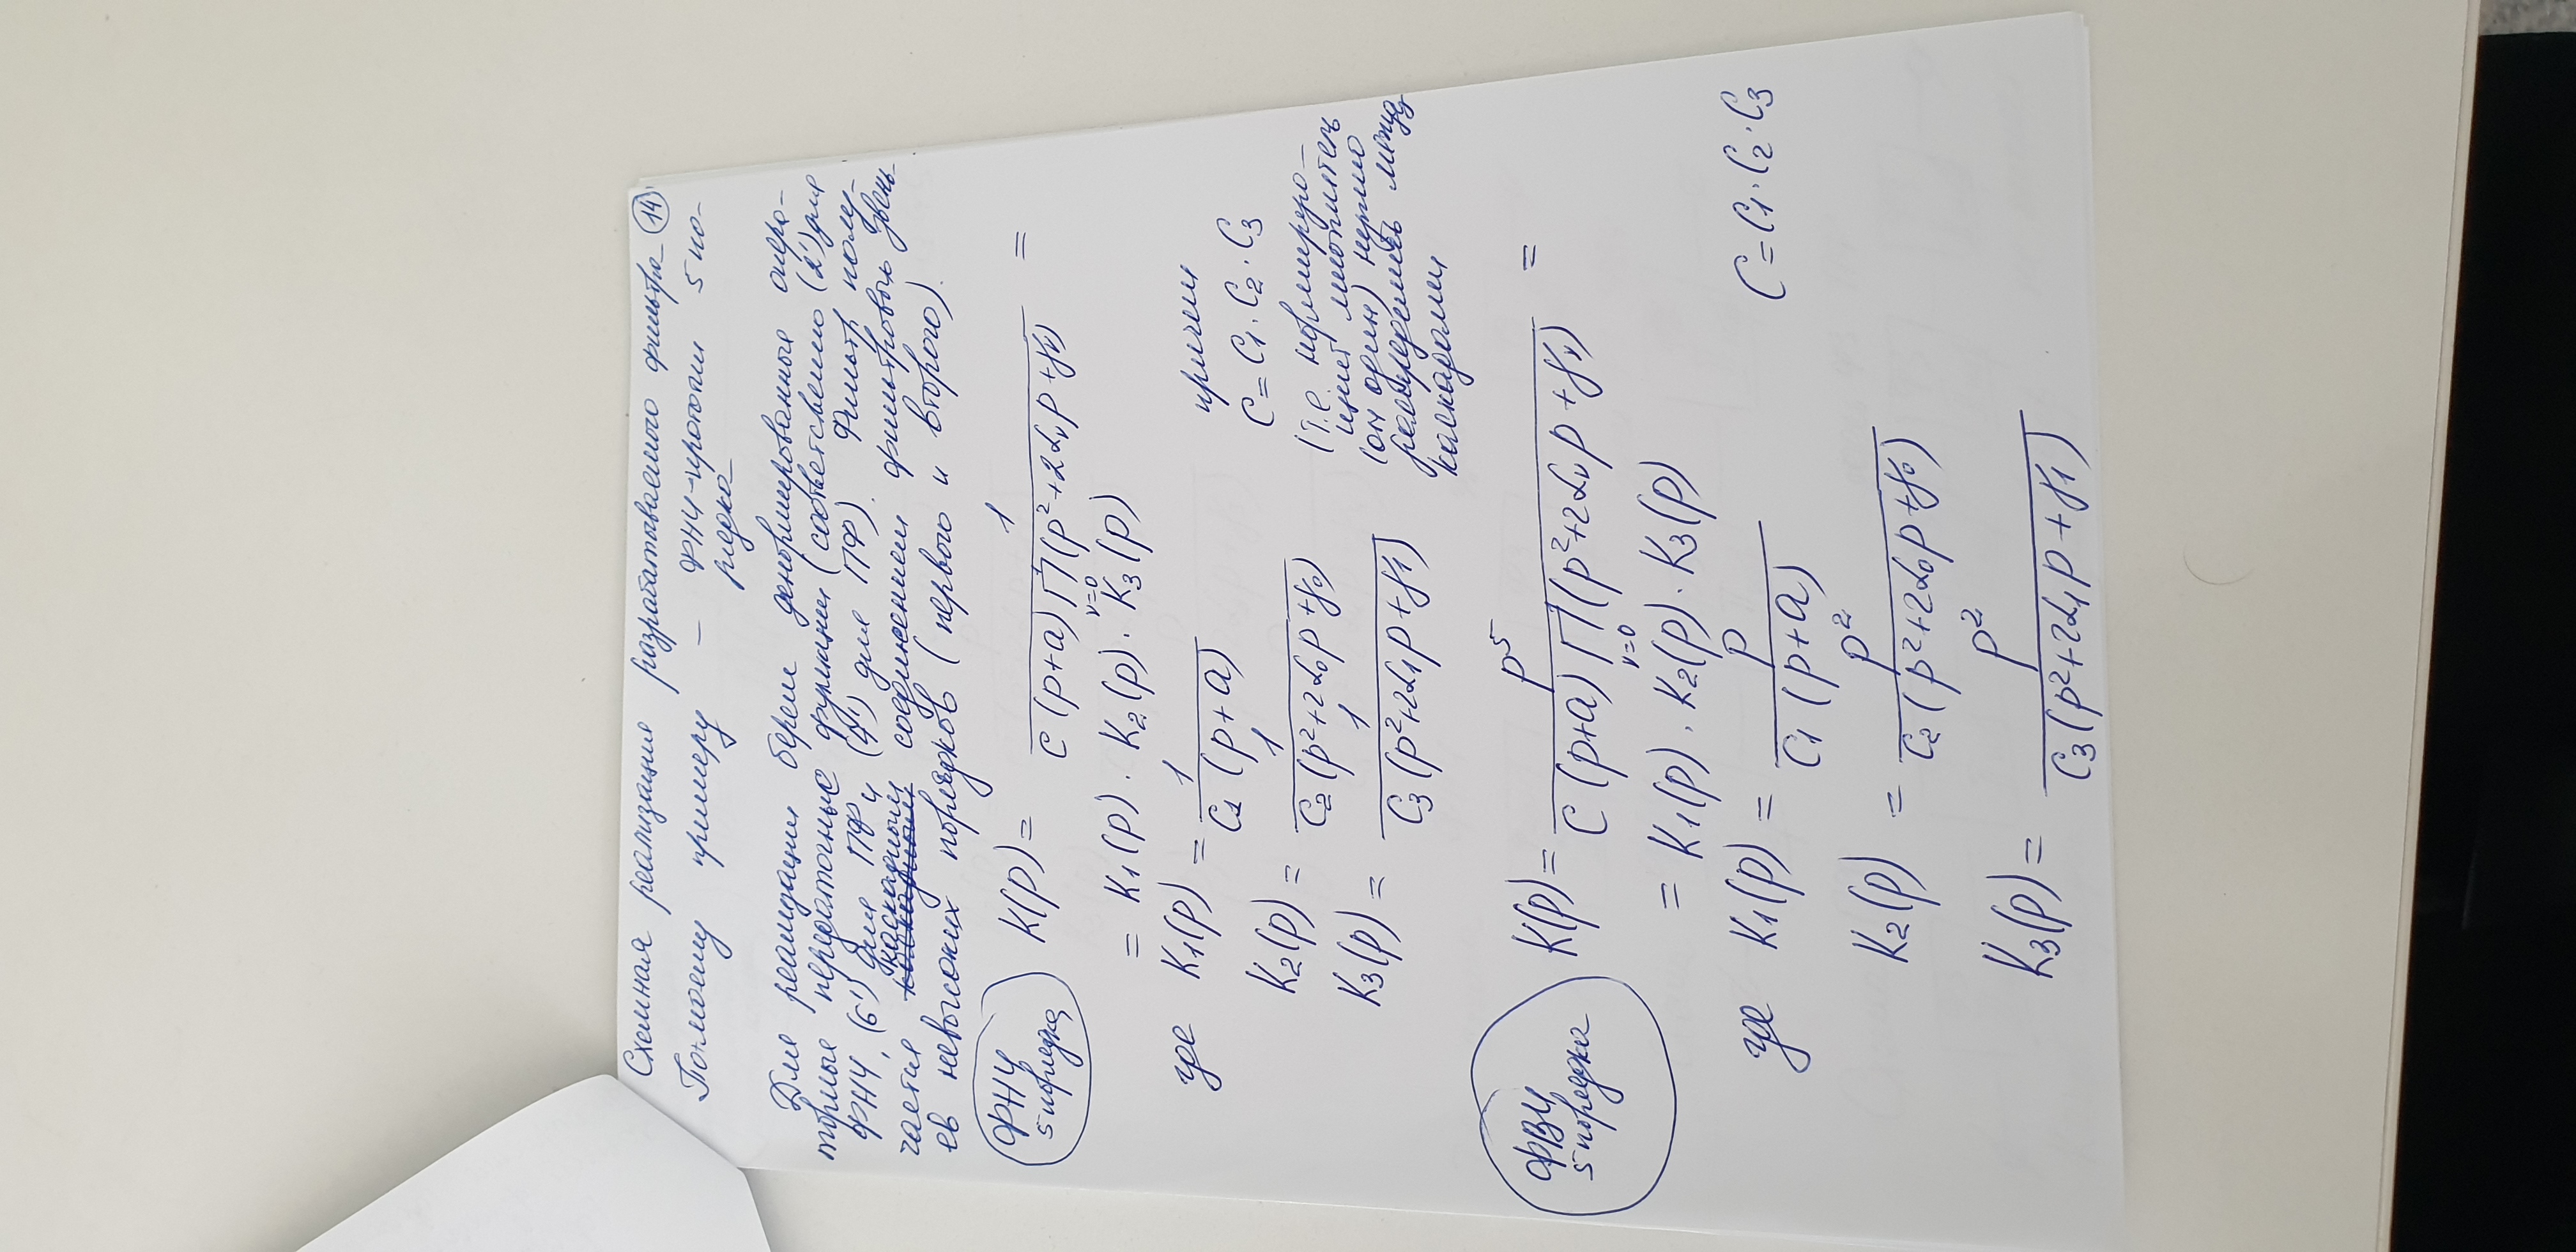 Схемная реализация разрабатываемого фильтра 14
По моему примеру – ФНЧ-прототип 5 по-
рядка
Для реализации берем денормированные опера-
торные передаточные функции (соответственно (2') для
ФНЧ, (6') для ПФ и (4') для ПФ). Фильтр полу-
чается каскадным соединением фильтровых звень-
ев невысоких порядков (первого и второго).
ФНЧ
5 порядка
K(p) = 1 / C (p+a) ∏ ν=0 (p²+2αᵥp+γᵥ) =
= K₁(p) · K₂(p) · K₃(p)
где K₁(p) = 1 / C₁ (p+a)
причем
C = C₁ · C₂ · C₃
K₂(p) = 1 / C₂ (p²+2α₀p+γ₀)
(т.е. нормирую-
щий множитель
(он один) нужно
распределить между
каскадами
K₃(p) = 1 / C₃ (p²+2α₁p+γ₁)
ФВЧ
5 порядка
K(p) = p⁵ / C (p+a) ∏ ν=0 (p²+2αᵥp+γᵥ) =
= K₁(p) · K₂(p) · K₃(p)
где K₁(p) = p / C₁ (p+a)
C = C₁ · C₂ · C₃
K₂(p) = p² / C₂ (p²+2α₀p+γ₀)
K₃(p) = p² / C₃ (p²+2α₁p+γ₁)